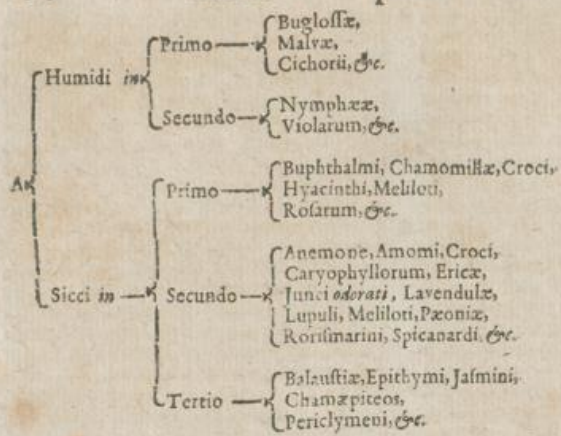 Humidi in
Primo
Buglossæ,
Malvæ,
Cichorii, &c.
Secundo
Nymphææ,
Violarum, &c.
A
Sicci in
Primo
Buphthalmi, Chamomillæ, Croci,
Hyacinthi, Meliloti,
Rosarum, &c.
Secundo
Anemone, Amomi, Croci,
Caryophyllorum, Ericæ,
Junci odorati, Lavendulæ,
Lupuli, Meliloti, Pæoniæ,
Rorismarini, Spicanardi. &c.
Tertio
Balaustiæ, Epithymi, Jasmini,
Chamæpiteos,
Periclymeni, &c.